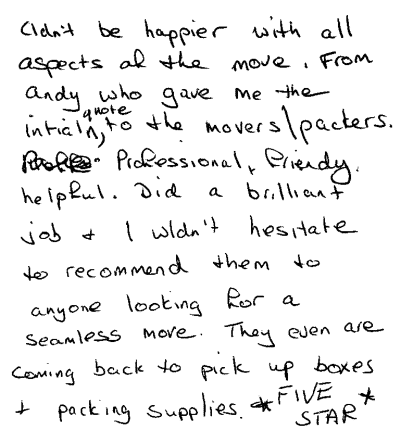 Cldn't be happier with all
aspects of the move. From
andy who gave me the
intial quote, to the movers/packers.
Professional, friendy,
helpful. Did a brilliant
job + I wldn't hesitate
to recommend them to
anyone looking for a
seamless move. They even are
coming back to pick up boxes
+ packing supplies. * FIVE
STAR *